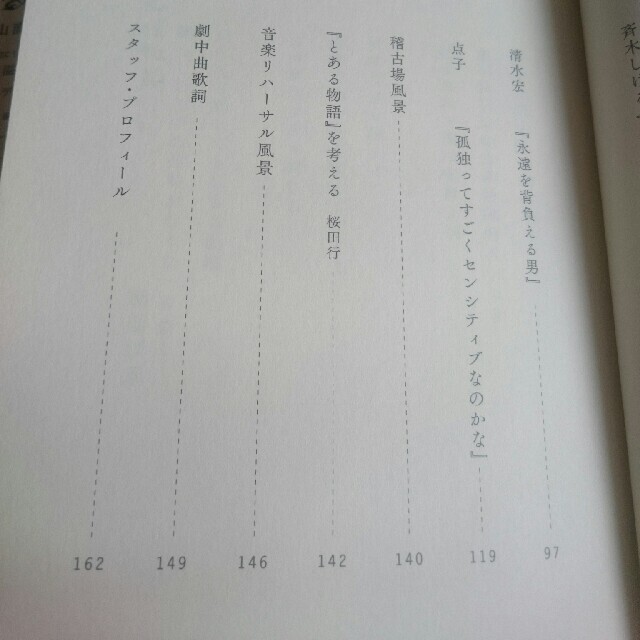 清水宏 『永遠を背負える男』 97
点子 『孤独ってすごくセンシティブなのかな』 119
稽古場風景 140
『とある物語』を考える 桜田行 142
音楽リハーサル風景 146
劇中曲歌詞 149
スタッフ・プロフィール 162